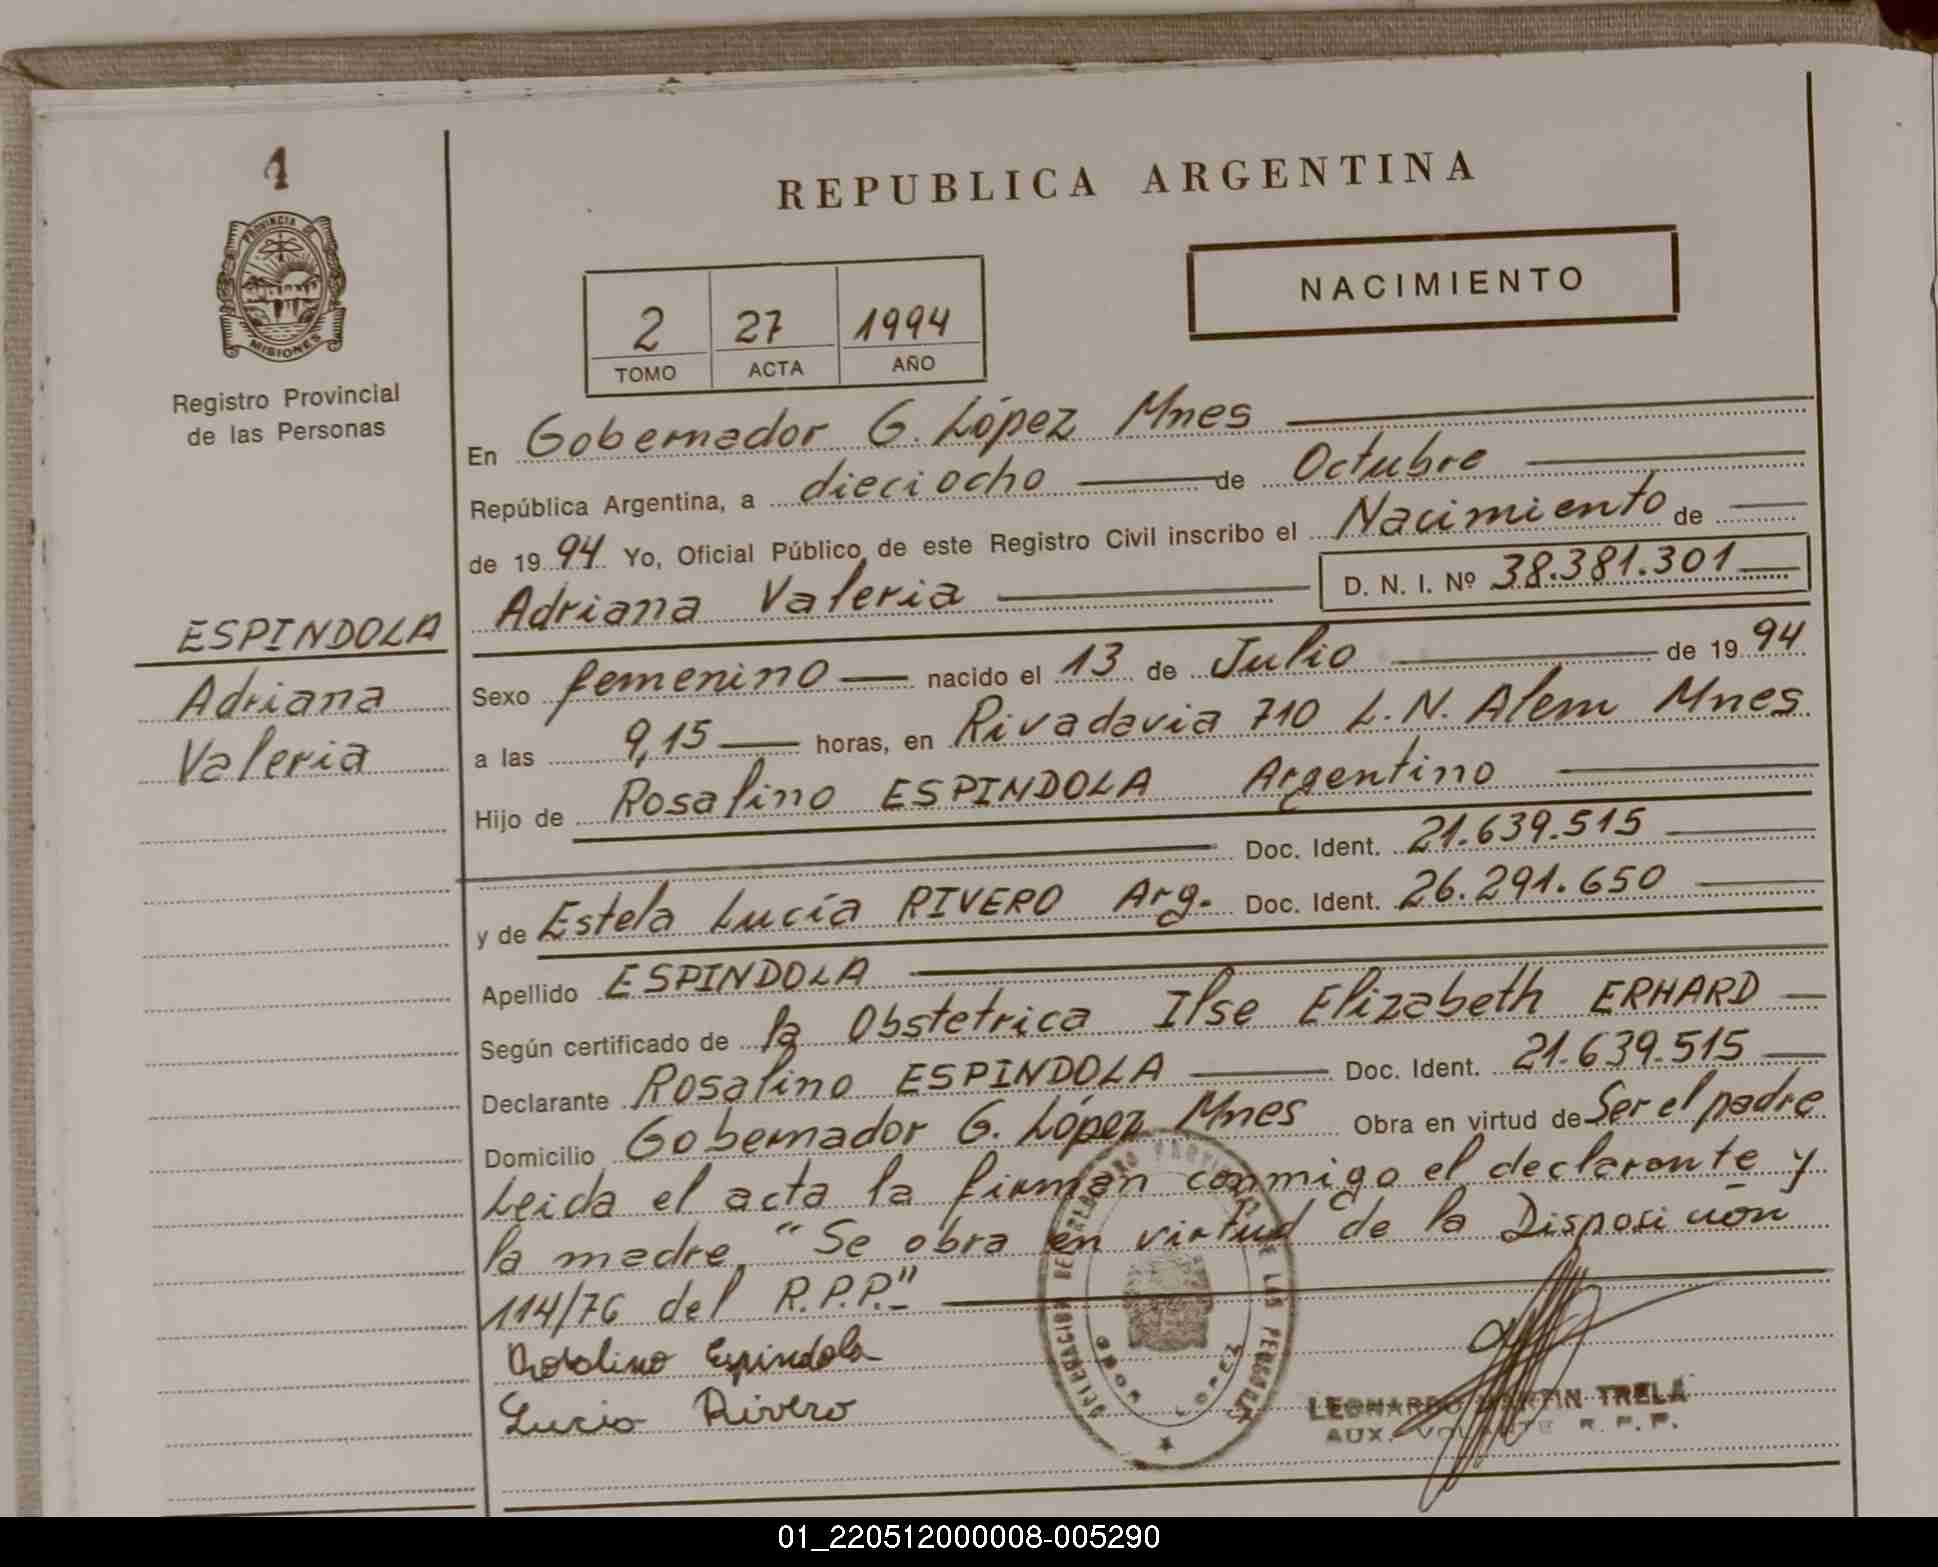 1
PROVINCIA DE
MISIONES
Registro Provincial
de las Personas
ESPINDOLA
Adriana
Valeria
REPUBLICA ARGENTINA
NACIMIENTO
2 27 1994
TOMO ACTA AÑO
En Gobernador G. López Mnes
República Argentina, a dieciocho de Octubre
de 1994 Yo, Oficial Público de este Registro Civil inscribo el Nacimiento de
Adriana Valeria D. N. I. Nº 38.381.301
Sexo femenino nacido el 13 de Julio de 1994
a las 9,15 horas, en Rivadavia 710 L.N. Alem Mnes
Hijo de Rosalino ESPINDOLA Argentino
Doc. Ident. 21.639.515
y de Estela Lucía RIVERO Arg. Doc. Ident. 26.291.650
Apellido ESPINDOLA
Según certificado de la Obstetrica Ilse Elizabeth ERHARD
Declarante Rosalino ESPINDOLA Doc. Ident. 21.639.515
Domicilio Gobernador G. López Mnes Obra en virtud de Ser el padre
Leida el acta la firman conmigo el declarante y
la madre "Se obra en virtud de la Disposición
114/76 del R.P.P."
Rosalino Espindola
Lucia Rivero
DELEGACION REGISTRO PROVINCIAL DE LAS PERSONAS
GBDOR LOPEZ
LEONARDO MARTIN TRELA
AUX. VOLANTE R. P. P.
01_220512000008-005290